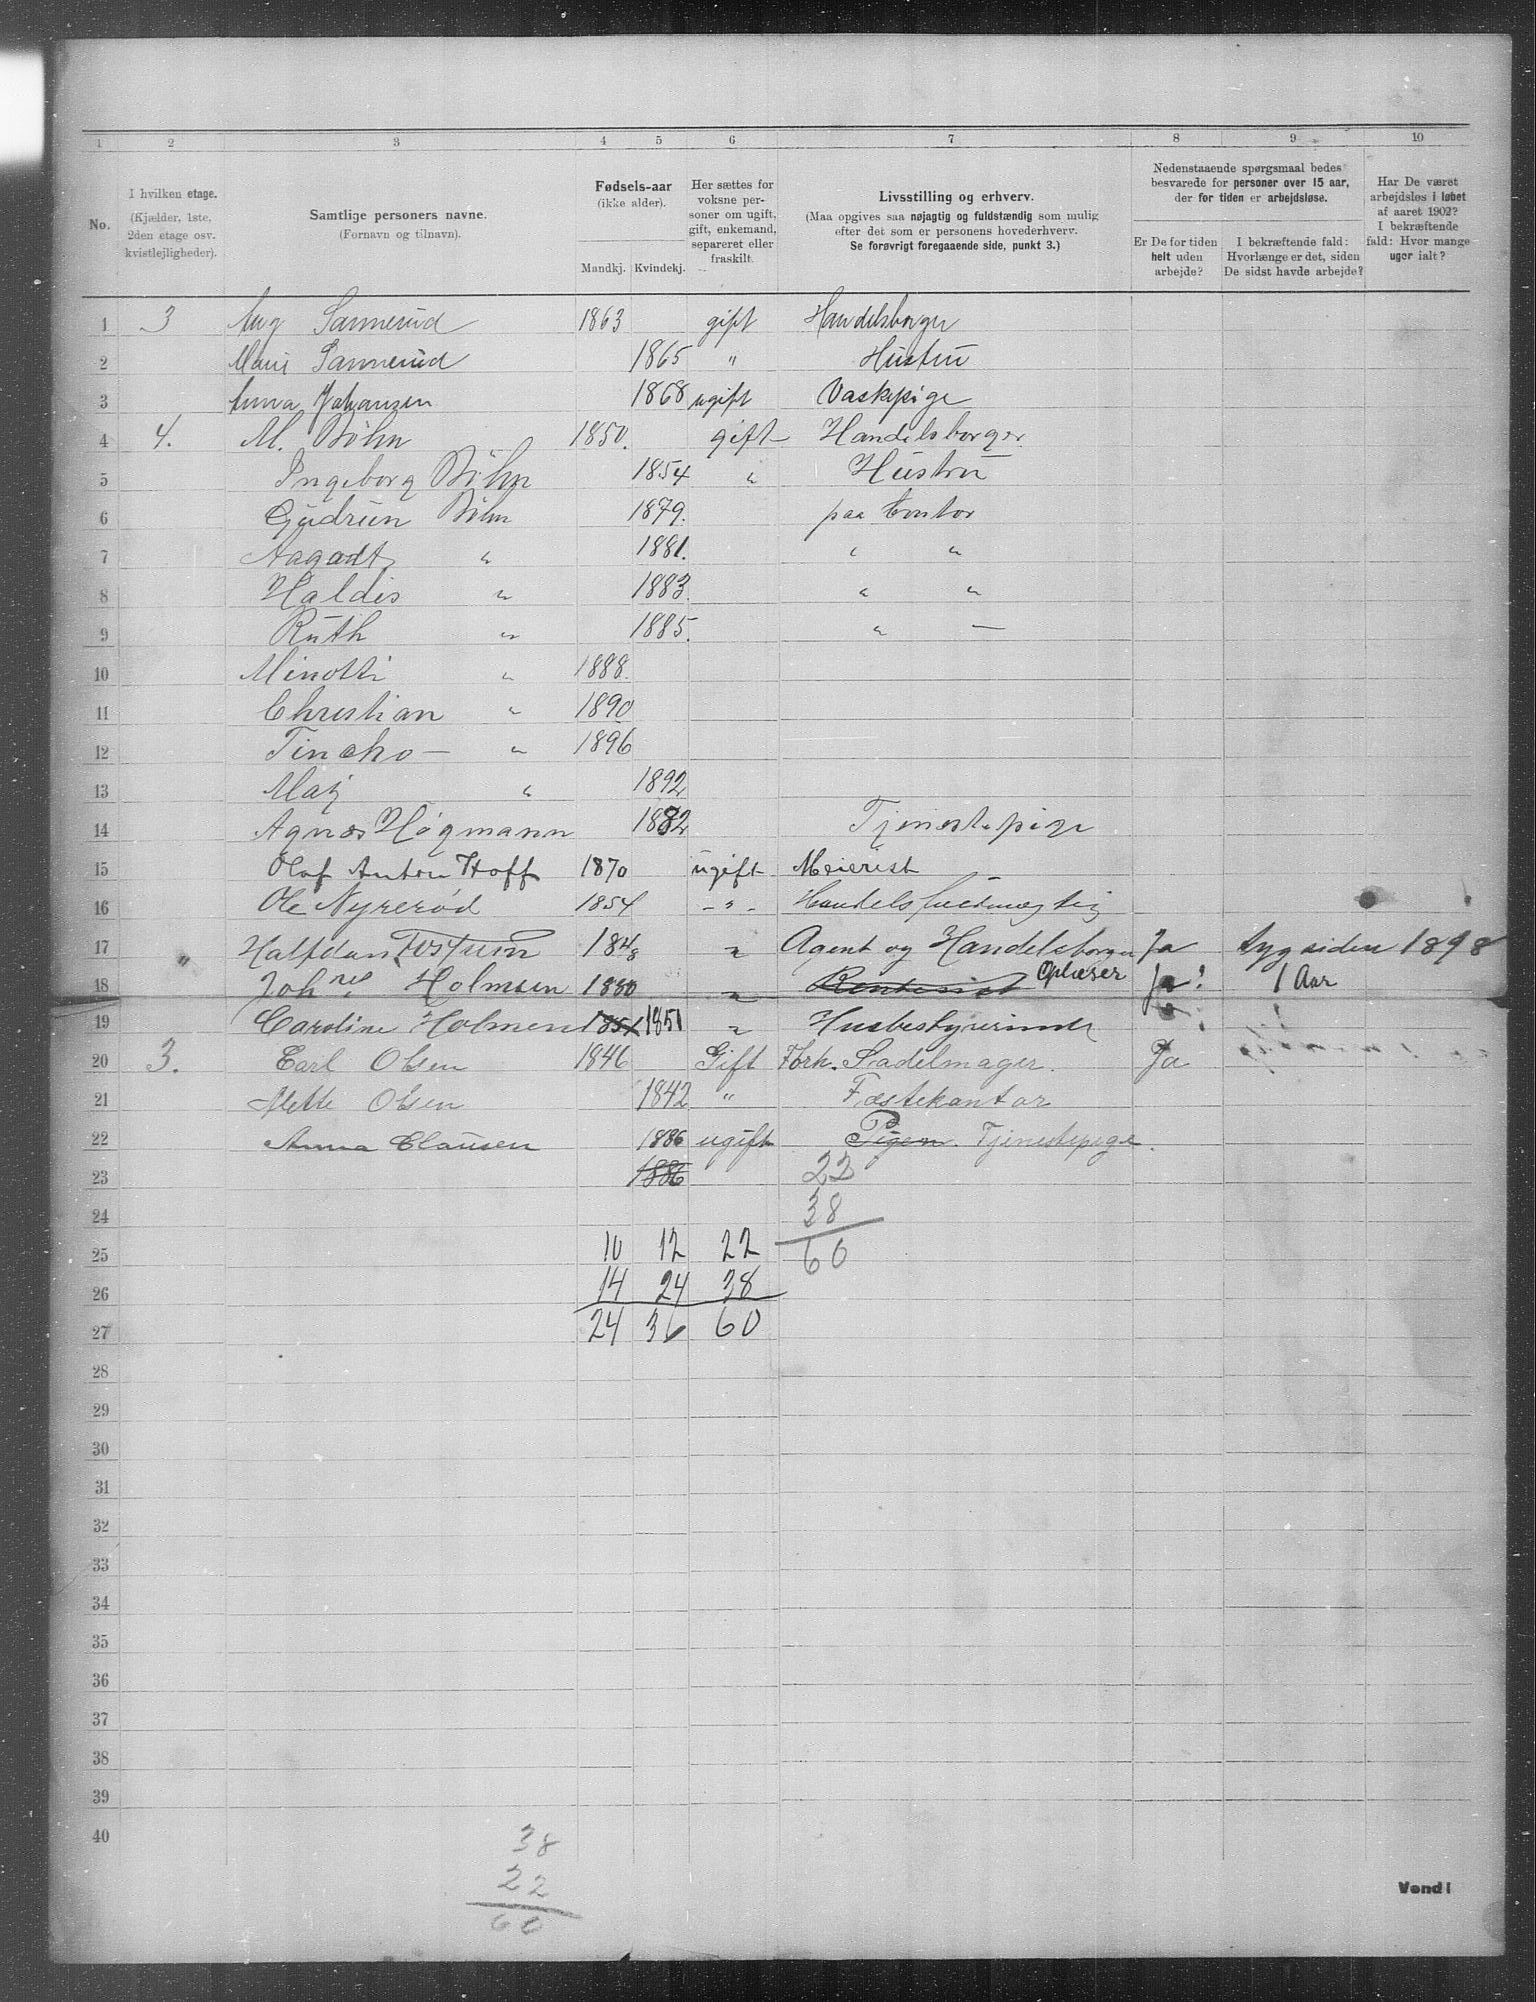 1 2 3 4 5 6 7 8 9 10
No. I hvilken etage. (Kjælder, 1ste, 2den etage osv. kvistlejligheder).
Samtlige personers navne. (Fornavn og tilnavn).
Fødsels-aar (ikke alder). Mandkj. Kvindekj.
Her sættes for voksne personer om ugift, gift, enkemand, separeret eller fraskilt.
Livsstilling og erhverv. (Maa opgives saa nøjagtig og fuldstændig som mulig efter det som er personens hovederhverv. Se forøvrigt foregaaende side, punkt 3.)
Nedenstaaende spørgsmaal bedes besvarede for personer over 15 aar, der for tiden er arbejdsløse.
Er De for tiden helt uden arbejde?
I bekræftende fald: Hvorlænge er det, siden De sidst havde arbejde?
Har De været arbejdsløs i løbet af aaret 1902? I bekræftende fald: Hvor mange uger ialt?
1 3 Aug Sannerud 1863 gift Handelsborger
2 Marie Sannerud 1865 " Hustru
3 Anna Johansen 1868 ugift Vaskepige
4 4. M. Bøhn 1850. gift Handelsborger
5 Ingeborg Bøhn 1854 " Hustru
6 Gudrun Bøhn 1879. paa Contor
7 Aagodt " 1881. " "
8 Haldis " 1883. " "
9 Ruth " 1885. " —
10 Minotti " 1888.
11 Christian " 1890
12 " 1896
13 Maj " 1892
14 Agnes Høgmann 1882 Tjenestepige
15 Olaf Anton Hoff 1870 ugift Meierist
16 Ole Nyrerød 1854 - " - Handelsfuldmægtig
17 " Halfdan 1848 " Agent og Handelsborger Ja syg siden 1898
18 Johnes Holmsen 1880 " Rentenist Oplæser Ja: 1 Aar
19 Caroline Holmen 1851 1851 " Husbestyrerinde
20 3. Carl Olsen 1846 Gift Forh. Sadelmager. Ja
21 Mette Olsen 1842 " Fæstekontor
22 Anna Clausen 1886 ugift Pigen. Tjenestepige.
23 1886 22
24 38
25 10 12 22 60
26 14 24 38
27 24 36 60
28
29
30
31
32
33
34
35
36
37
38
39
40
38
22
60
Vend!